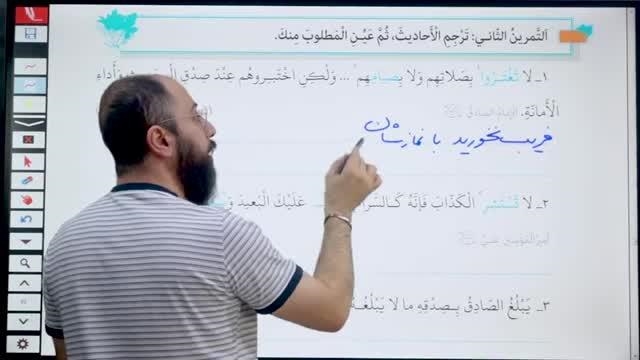 اَلتَّمرينُ الثّاني: تَرْجِمِ الْأَحاديثَ، ثُمَّ عَيِّنِ الْمَطلوبَ مِنكَ.
١ـ لا تَغْتَرّوا بِصَلاتِهِم وَلا بِصيامِهِم ... وَلٰكِنِ اخْتَبِروهُم عِنْدَ صِدْقِ وَأَداءِ
الْأَمانَةِ. الإمامُ الصّادِقُ
فریب نخورید با نمازشان
٢ـ لا تَسْتَشِرِ الْكَذّابَ فَإِنَّهُ كَالسَّرابِ عَلَيْكَ الْبَعيدَ
أميرُ المؤمنين عليّ
٣ـ يَبْلُغُ الصّادِقُ بِصِدْقِهِ ما لا يَبْلُغُهُ